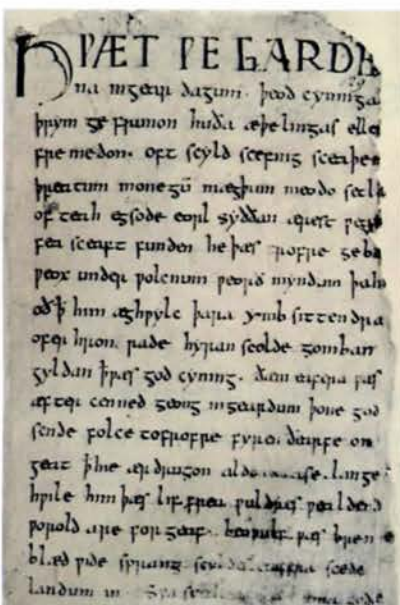 HǷÆT ǷE GARDE
na ingear dagum. þeod cyninga
þrym ge frunon huða æþelingas elle
fre medon. oft scyld scefing sceaþe
þreatum monegū mægþum meodo setla
of teah egsode eorl syððan ærest ƿear
fea sceaft funden he þæs frofre geba
ƿeox under ƿolcnum ƿeorð myndum þah
oðꝥ him æghƿylc þara ymb sittendra
ofer hron rade hyran scolde gomban
gyldan ꝥ ƿæs god cyning. ðæm eafera ƿæs
æfter cenned geong ingeardum þone god
sende folce tofrofre fyren ðearfe on
geat ꝥ hie ær drugon aldor ase. lange
hƿile him þæs lif frea ƿuldres ƿealdend
ƿorold are for geaf. beoƿulf ƿæs breme
blæd ƿide sprang scyldes eafera scede
landum in. Sƿa uma gode